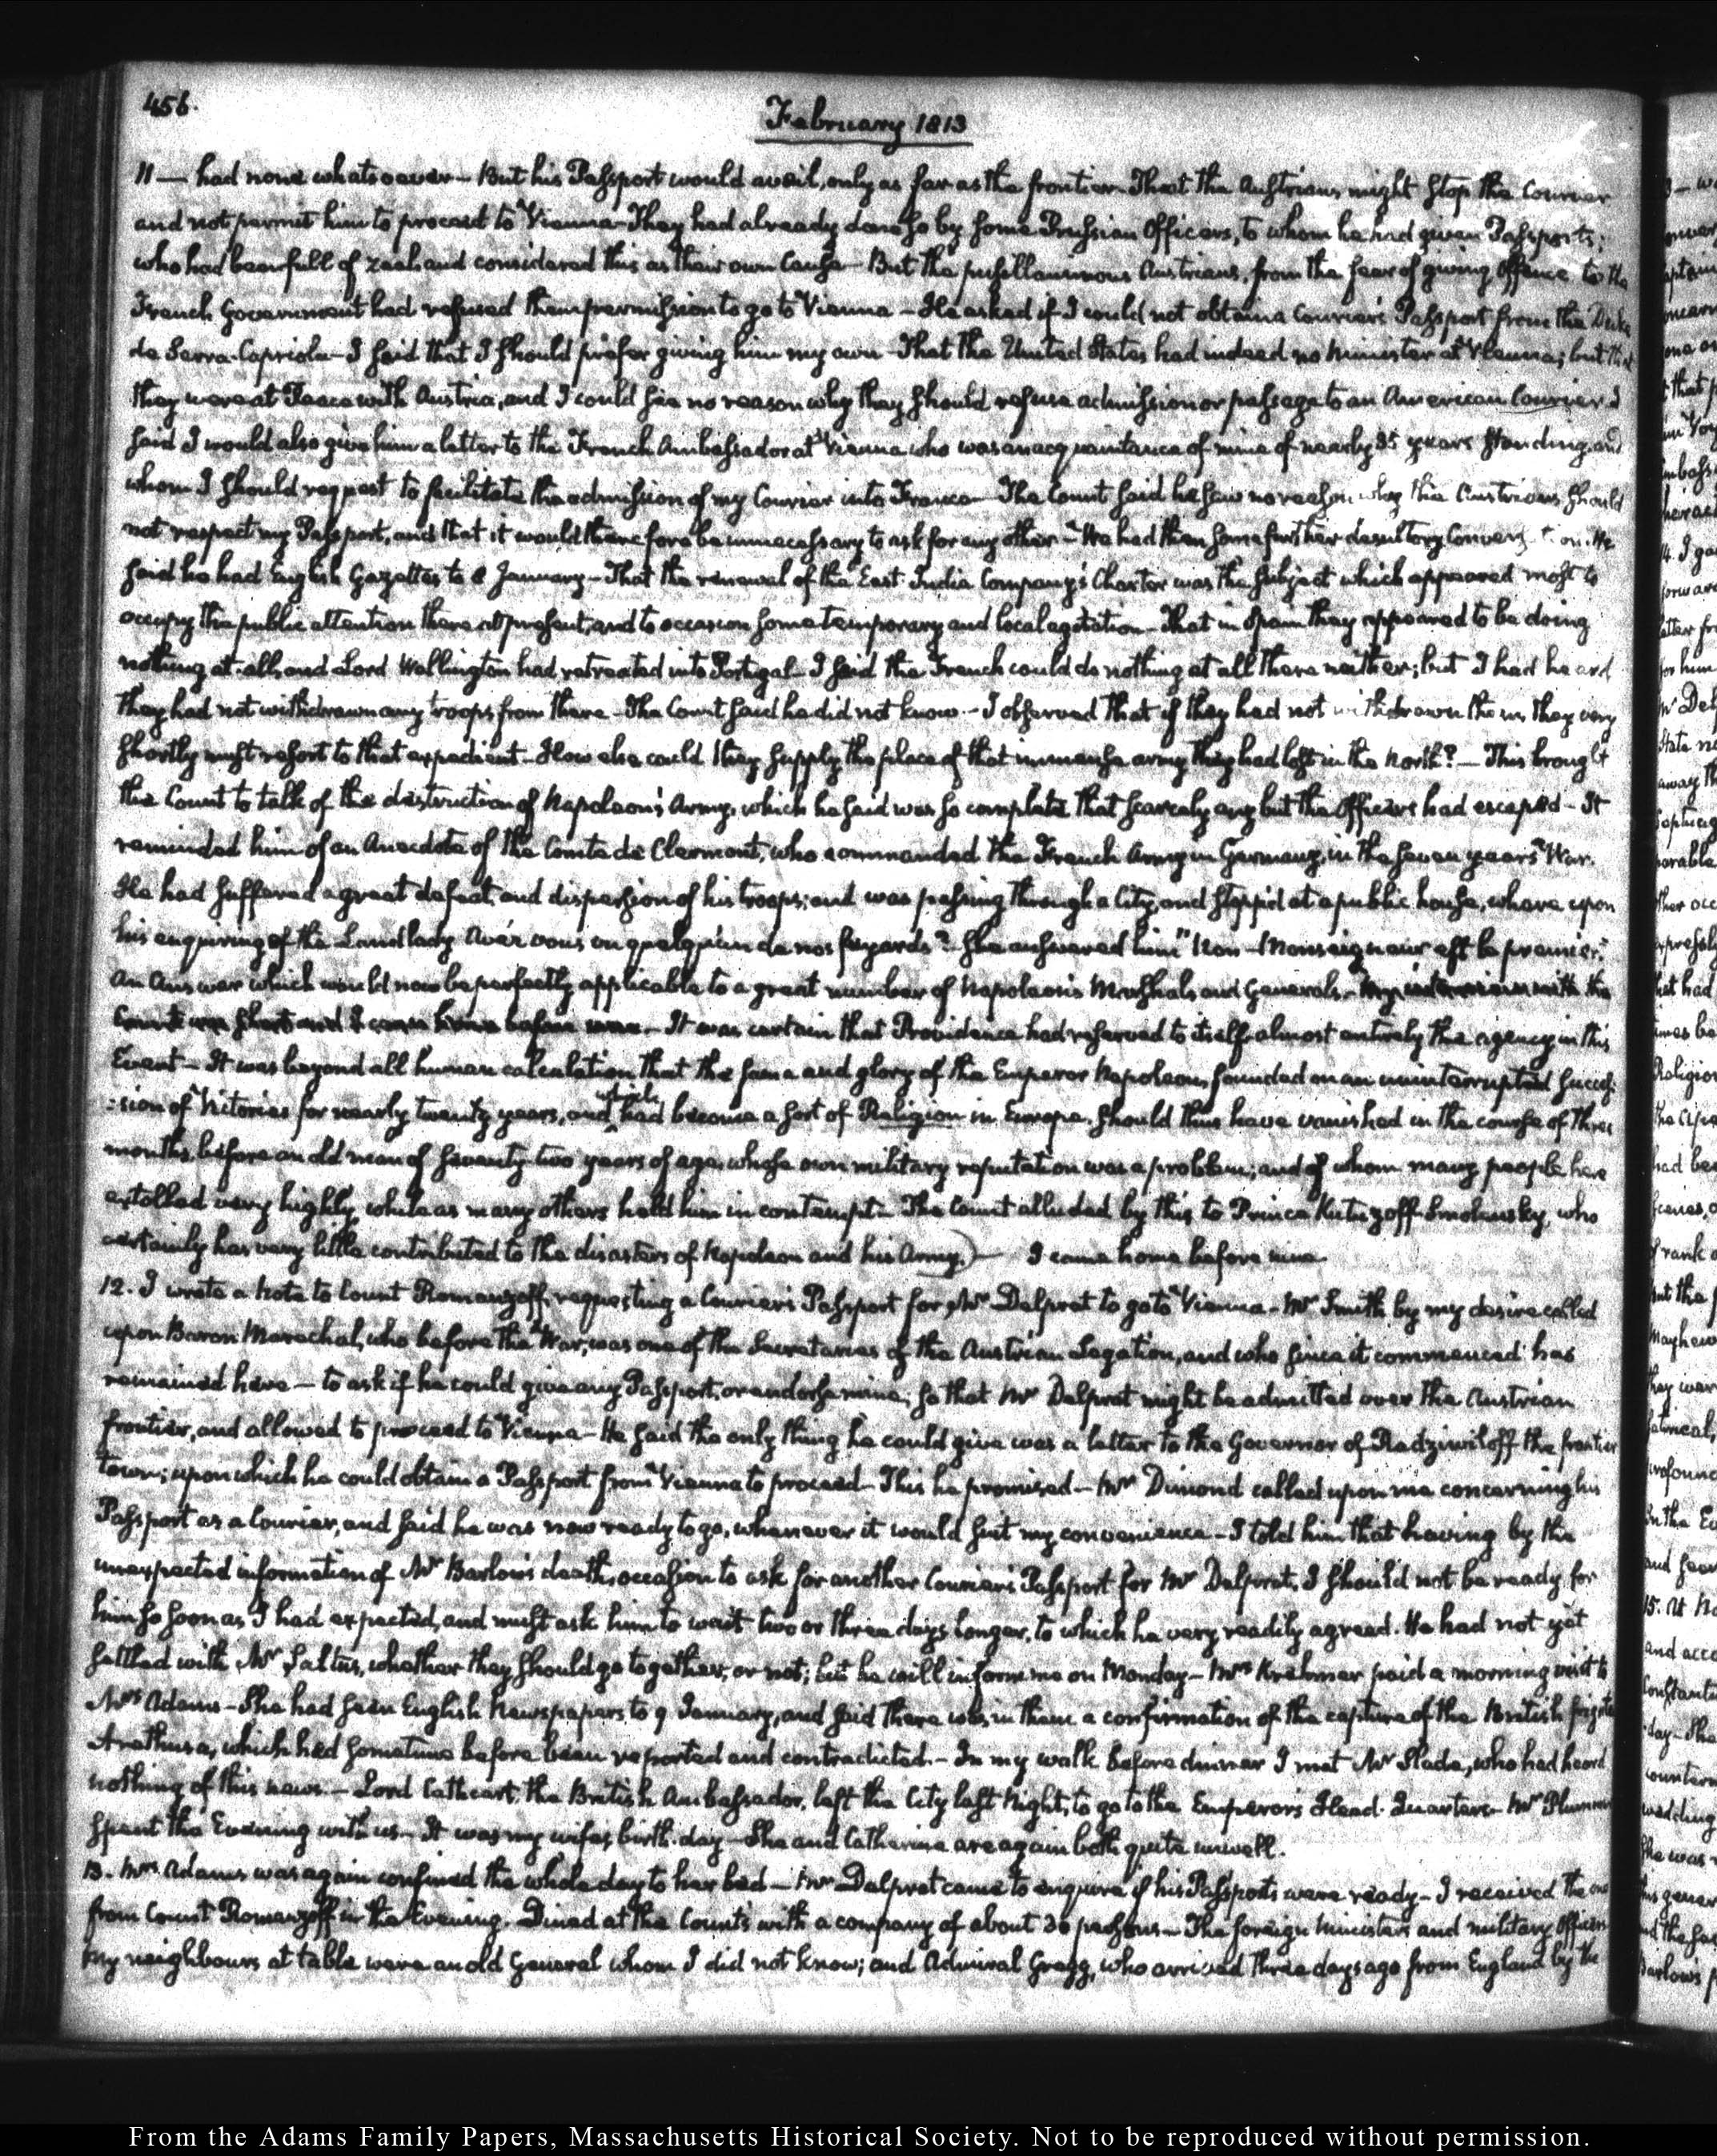 456.
February 1813
11 — had none whatsoever — But his Passport would avail, only as far as the frontier — That the Austrians might stop the Courier
and not permit him to proceed to Vienna — They had already done so by some Prussian Officers, to whom he had given Passports;
who had been full of zeal, and considered this as their own Cause — But the pusillanimous Austrians, from the fear of giving offence to the
French Government had refused them permission to go to Vienna — He asked if I could not obtain a Courier's Passport from the Duke
de Serra-Capriola — I said that I should prefer giving him my own — That the United States had indeed no Minister at Vienna; but that
they were at Peace with Austria, and I could see no reason why they should refuse admission or passage to an American Courier I
said I would also give him a letter to the French Ambassador at Vienna who was an acquaintance of mine of nearly 35 years standing, and
whom I should request to facilitate the admission of my Courier into France — The Count said he saw no reason why the Austrians should
not respect my Passport, and that it would therefore be unnecessary to ask for any other — We had then some further desultory Conversation. He
said he had English Gazettes to 8 January — That the renewal of the East-India Company's Charter was the subject which appeared most to
occupy the public attention there at present, and to occasion some temporary and local agitation — That in Spain they appeared to be doing
nothing at all, and Lord Wellington had retreated into Portugal — I said the French could do nothing at all there neither; but I had heard
they had not withdrawn any troops from there — The Count said he did not know — I observed that if they had not withdrawn them, they very
shortly must resort to that expedient — How else could they supply the place of that immense army they had lost in the North? — This brought
the Count to talk of the destruction of Napoleon's Army, which he said was so complete that scarcely any but the Officers had escaped — It
reminded him of an Anecdote of the Comte de Clermont, who commanded the French Army in Germany, in the seven years' War.
He had suffered a great defeat, and dispersion of his troops; and was passing through a City, and stopp'd at a public house, where upon
his enquiring of the Landlady Avez vous vu quelqu'un de nos fuyards? She answered him "Non — Monseigneur est le premier."
An Answer which would now be perfectly applicable to a great number of Napoleon's Marshals and Generals. — My interview with the
Count was short and I came home before nine. — It was certain that Providence had reserved to itself almost entirely the agency in this
Event — It was beyond all human calculation that the fame and glory of the Emperor Napoleon, founded on an uninterrupted succes-
:sion of Victories for nearly twenty years, and which had become a sort of Religion in Europe, should thus have vanished in the course of three
months, before an old man of seventy-two years of age, whose own military reputation was a problem; and of whom many people here
extolled very highly, while as many others held him in contempt — The Count alluded by this to Prince Kutuzoff-Smolensky, who
certainly has very little contributed to the disasters of Napoleon and his Army.) — I came home before nine.
12. I wrote a Note to Count Romanzoff, requesting a Courier's Passport for Mr Delprat to go to Vienna — Mr Smith by my desire called
upon Baron Marechal, who before the War, was one of the Secretaries of the Austrian Legation, and who since it commenced has
remained here — to ask if he could give any Passport, or endorse mine, so that Mr Delprat might be admitted over the Austrian
frontier, and allowed to proceed to Vienna — He said the only thing he could give was a letter to the Governor of Radziwiloff the frontier
town; upon which he could obtain a Passport from Vienna to proceed — This he promised — Mr Dimond called upon me concerning his
Passport as a Courier, and said he was now ready to go, whenever it would suit my convenience — I told him that having by the
unexpected information of Mr Barlow's death, occasion to ask for another Courier's Passport for Mr Delprat, I should not be ready for
him so soon as I had expected, and must ask him to wait two or three days longer, to which he very readily agreed. He had not yet
settled with Mr Saltus, whether they should go together, or not; but he will inform me on Monday — Mrs Krehmer paid a morning visit to
Mrs Adams — She had seen English Newspapers to 9 January, and said there was in them a confirmation of the capture of the British frigate
Arethusa, which had sometime before been reported and contradicted. — In my walk before dinner I met Mr Slade, who had heard
nothing of this news. — Lord Cathcart, the British Ambassador, left the City last Night, to go to the Emperor's Head-Quarters — Mr Plummer
spent the Evening with us — It was my wife's birth-day — She and Catherine are again both quite unwell.
13. Mrs Adams was again confined the whole day to her bed — Mr Delprat came to enquire if his Passports were ready — I received the one
from Count Romanzoff in the Evening. Dined at the Count's with a company of about 30 persons — The foreign Ministers and military Officers
My neighbours at table were an old General whom I did not know; and Admiral Greigg, who arrived three days ago from England by the
From the Adams Family Papers, Massachusetts Historical Society. Not to be reproduced without permission.